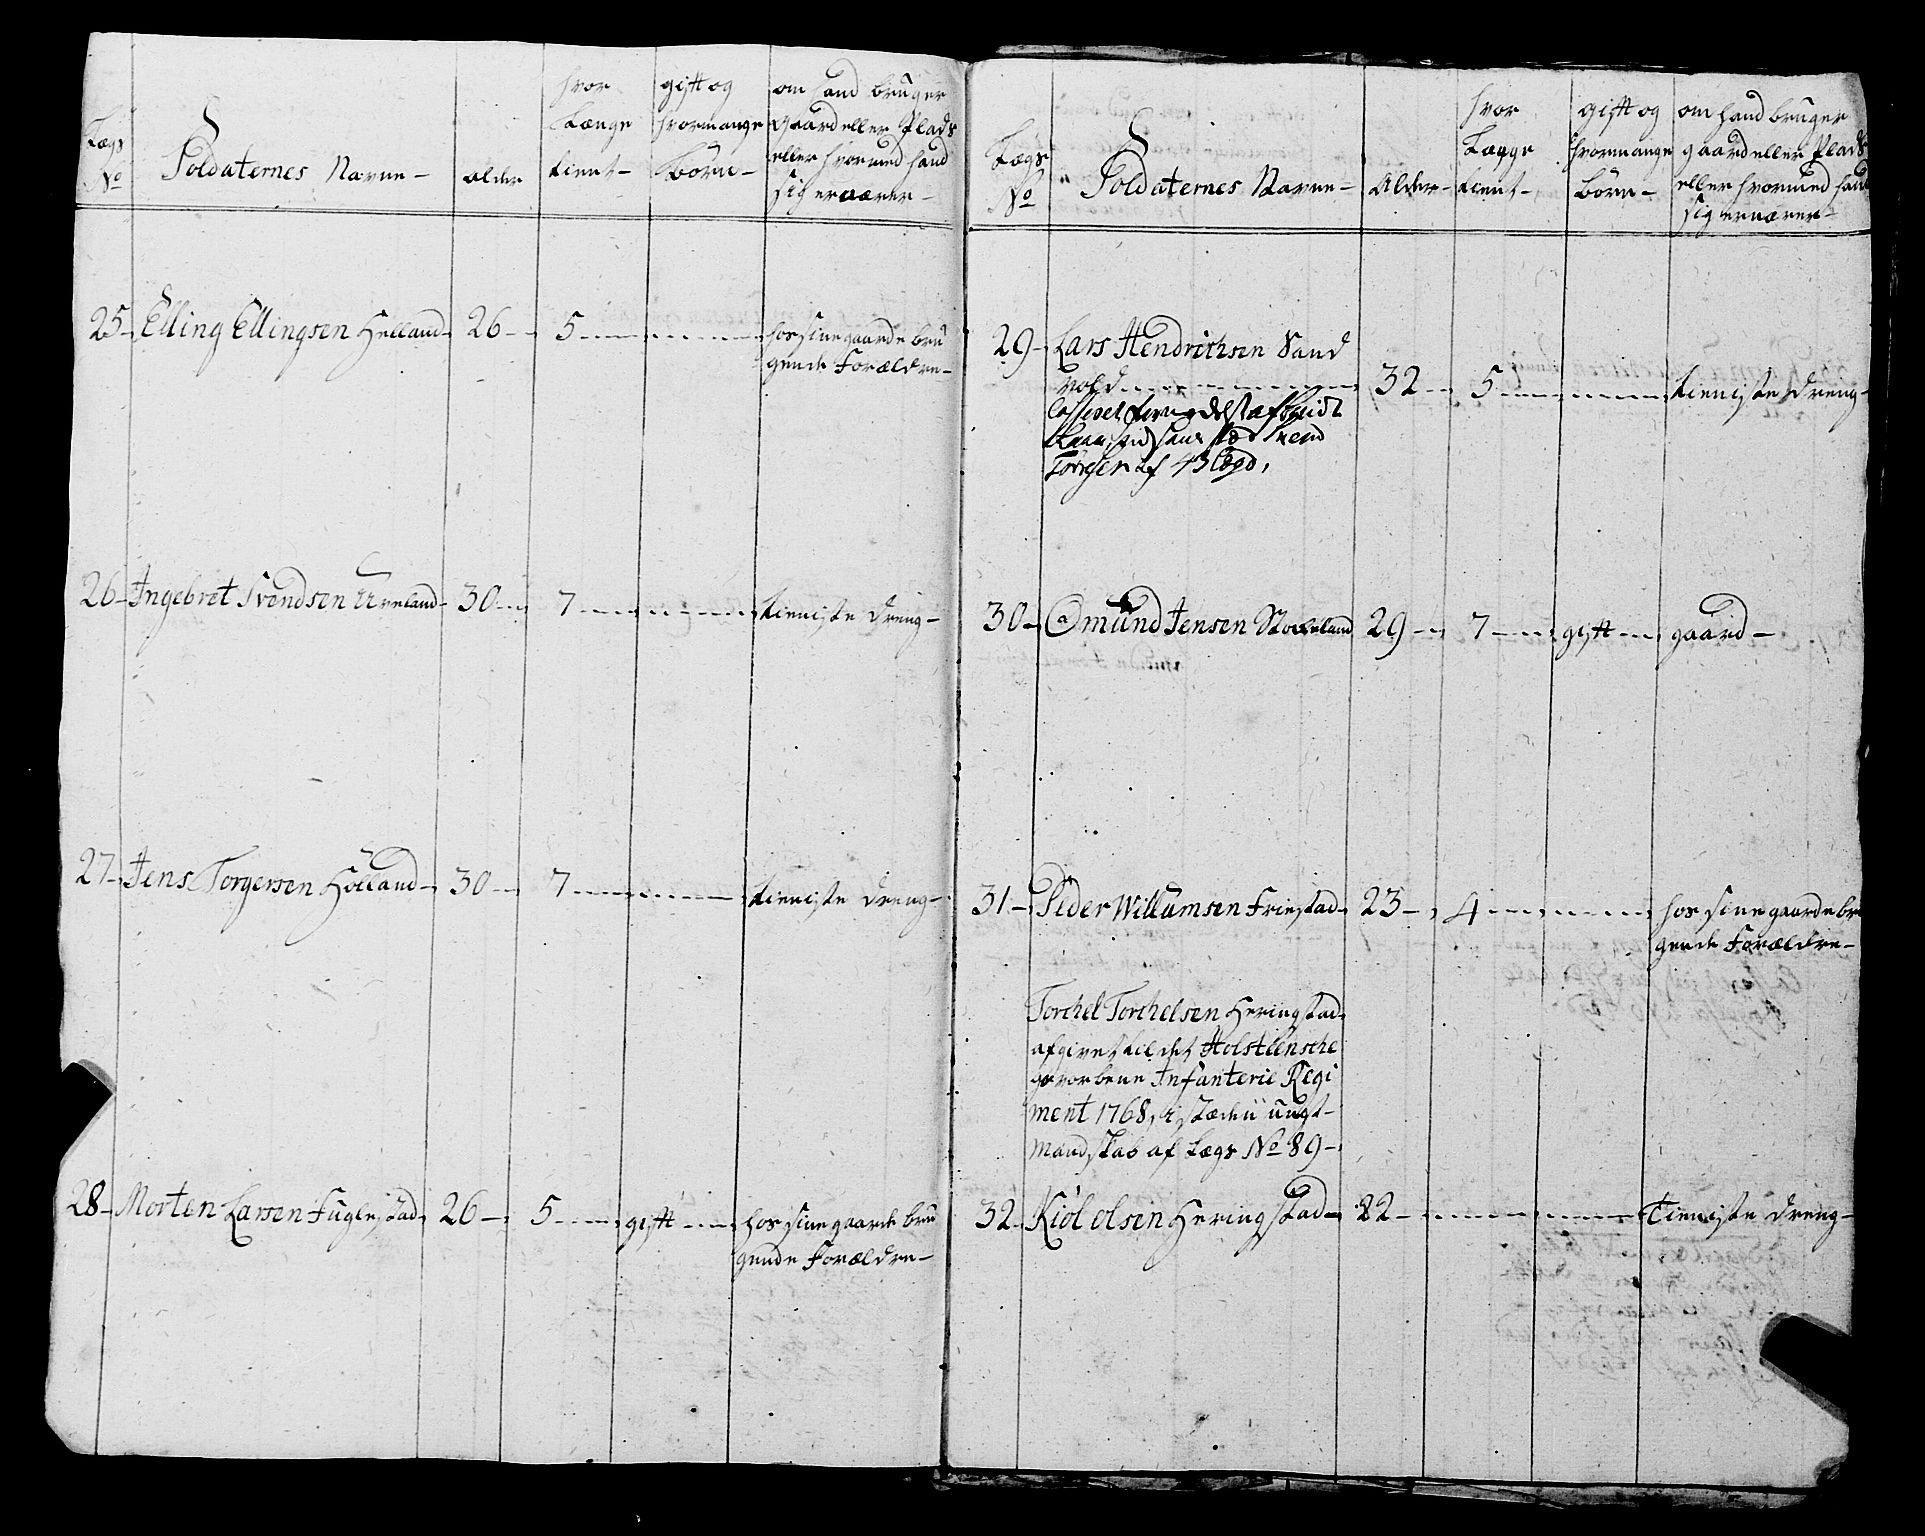 Lægs No
Soldaternes Navne -
alder
hvor Længe tient -
gift og hvormange Børn -
om hand bruger
gaard eller Plads
eller hvormed hand
sig ernærer -
25 - Elling Ellingsen Helland - 26 - 5 - hos sine gaarde bru
gende Forældre -
26 - Ingebret Svendsen Ueland - 30 - 7 - tieniste dreng -
27 - Jens Torgersen Hölland - 30 - 7 - tieniste dreng -
28 - Morten Larsen Fuglestad 26 - 5 - gift - hos sine gaarde bru
gende Forældre -
Lægs No
Soldaternes Navne -
Alder -
hvor Længe tient -
gift og hvormange Børn -
om hand bruger
gaard eller Plads
eller hvormed hand
sig ernærer -
29 - Lars Hendrichsen Sand
vold - 32 - 5 - tieniste dreng -
Svend
Törresen af 43 Lægd,
30 - Omund Jensen Stockeland 29 - 7 - gift - gaard -
31 - Peder Willumsen Friestad - 23 - 4 - hos sine gaarde br
gende Forældre -
Torchel Torchelsen Heringstad
afgivet til det Holsteensche
gevorbene Infanterie Regi
ment 1768, i stæden ungt
mandskab af Lægs No 89 -
32 - Kiöl olsen Heringstad - 22 - Tieniste dreng -